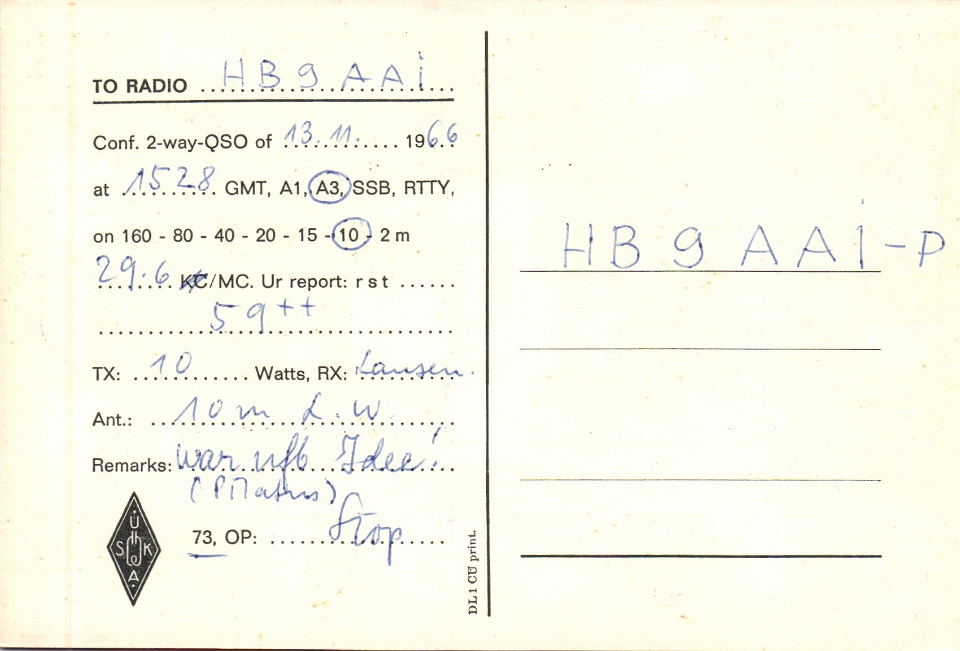 TO RADIO HB9AAI
Conf. 2-way-QSO of 13.11. 1966
at 1528 GMT, A1, A3, SSB, RTTY,
on 160 - 80 - 40 - 20 - 15 - 10 - 2 m
29.6 KC/MC. Ur report: r s t
59++
TX: 10 Watts, RX: Lausen.
Ant.: 10 m L.W.
Remarks: war ufb Idee!
(Pilatus)
73, OP:
Ü
S K
A
DL1CU print.
HB9AAI-P